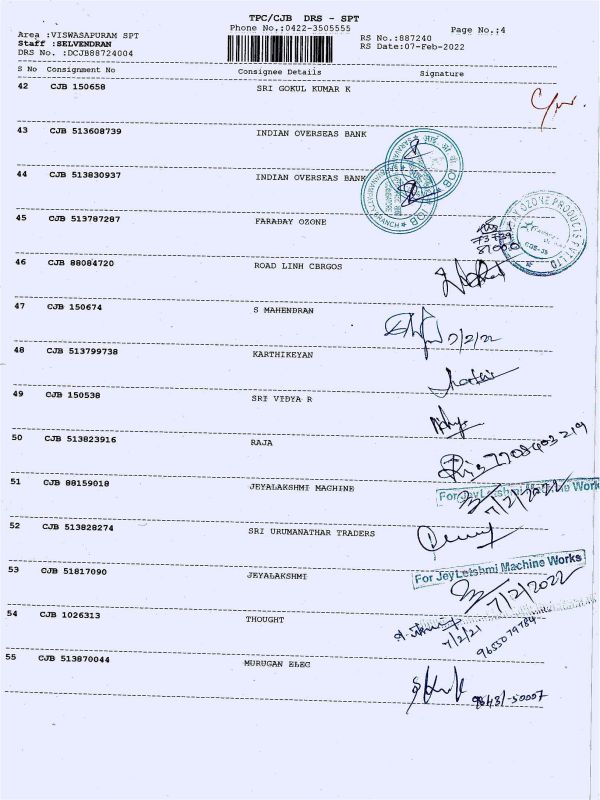 TPC/CJB DRS - SPT
Phone No.:0422-3505555
Page No.:4
Area :VISWASAPURAM SPT
RS No.:887240
Staff :SELVENDRAN
RS Date:07-Feb-2022
DRS No. :DCJB88724004
S No Consignment No Consignee Details Signature
42 CJB 150658 SRI GOKUL KUMAR K
43 CJB 513608739 INDIAN OVERSEAS BANK
44 CJB 513830937 INDIAN OVERSEAS BANK
IOB
BRANCH
IOB
45 CJB 513787287 FARADAY OZONE
OZONE PRODUCTS PVT LTD
46 CJB 88084720 ROAD LINH CBRGOS
47 CJB 150674 S MAHENDRAN
7/2/22
48 CJB 513799738 KARTHIKEYAN
49 CJB 150538 SRI VIDYA R
50 CJB 513823916 RAJA
7708403219
51 CJB 88159018 JEYALAKSHMI MACHINE
For Jey Letshmi Machine Work
7/2/2022
52 CJB 513828274 SRI URUMANATHAR TRADERS
53 CJB 51817090 JEYALAKSHMI
For Jey Letshmi Machine Works
7/2/2022
54 CJB 1026313 THOUGHT
7/2/21
9655079784
55 CJB 513870044 MURUGAN ELEC
98431-50007